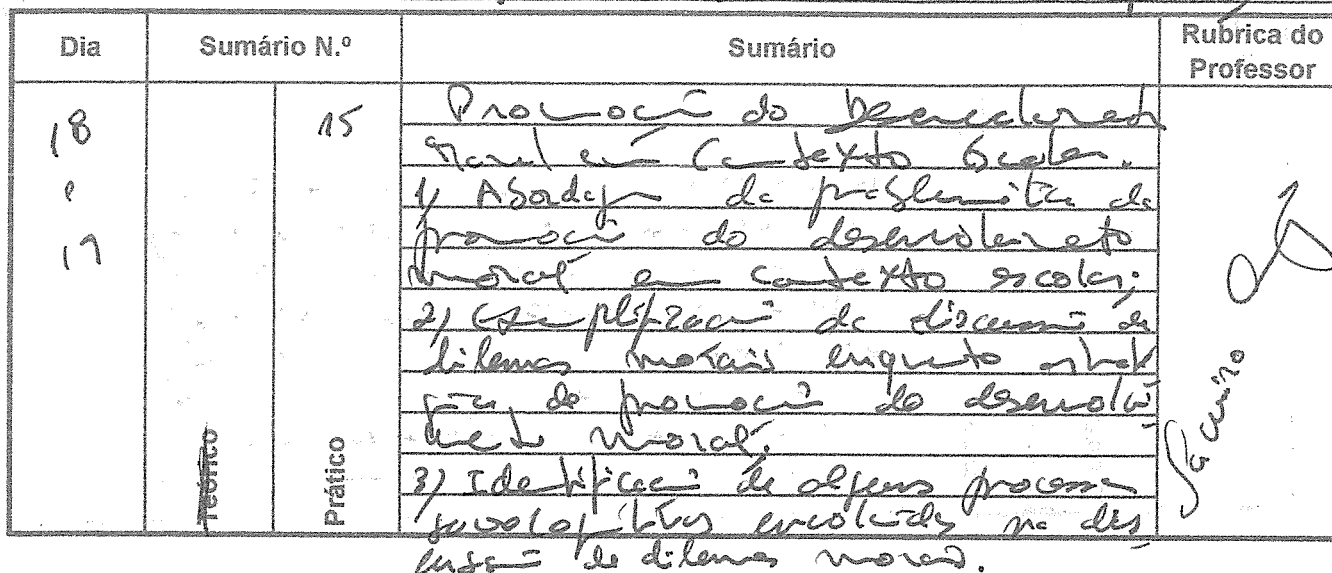 Dia Sumário N.º Sumário Rubrica do Professor
18 e 17
15
Teórico
Prático
Promoção do Desenvolvimento
Moral em Contexto Escolar.
1) Abordagem da problemática da
promoção do desenvolvimento
moral em contexto escolar;
2) Exemplificação da discussão de
dilemas morais enquanto estraté
gia de promoção do desenvolvi
mento moral.
3) Identificação de alguns processos
envolvidos na dis
cussão de dilemas morais.